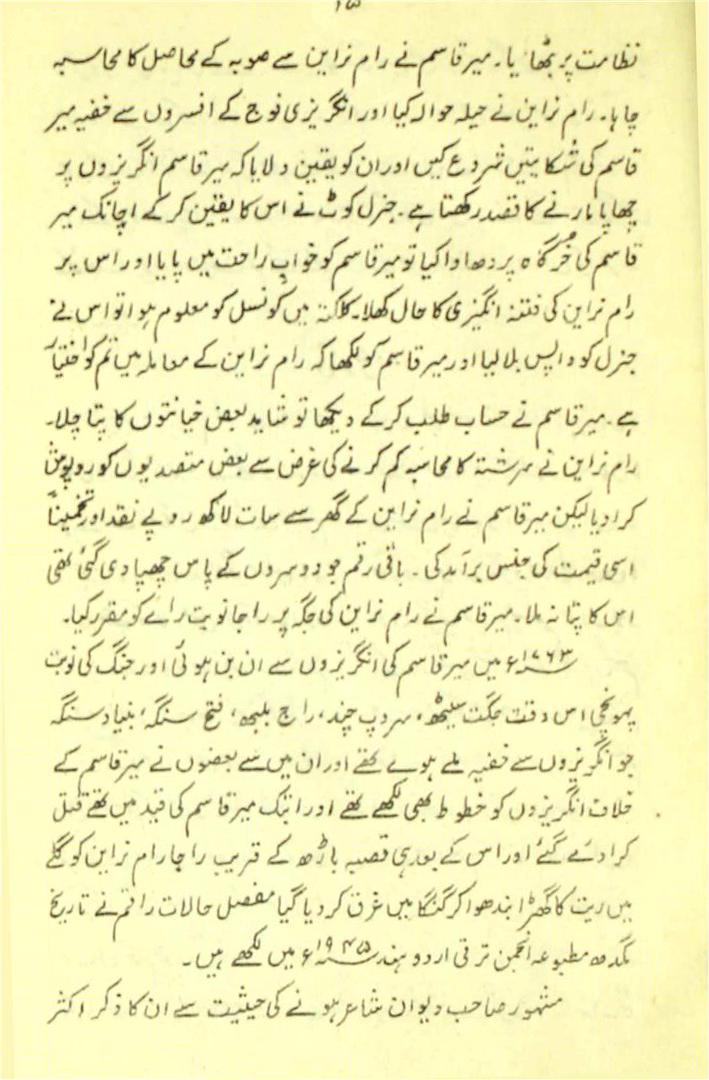 ۱۵
نظامت پر بٹھایا۔ میر قاسم نے رام نراین سے صوبہ کے محاصل کا محاسبہ
چاہا۔ رام نراین نے حیلہ حوالہ کیا اور انگریزی فوج کے افسروں سے خفیہ میر
قاسم کی شکایتیں شروع کیں اور ان کو یقین دلایا کہ میر قاسم انگریزوں پر
چھاپا مارنے کا قصد رکھتا ہے۔ جنرل کوٹ نے اس کا یقین کر کے اچانک میر
قاسم کی خُرگاہ پر دھاوا کیا تو میر قاسم کو خوابِ راحت میں پایا اور اس پر
رام نراین کی فتنہ انگیزی کا حال کھلا۔ کلکتہ میں کونسل کو معلوم ہوا تو اس نے
جنرل کو واپس بلا لیا اور میر قاسم کو لکھا کہ رام نراین کے معاملہ میں تم کو اختیار
ہے۔ میر قاسم نے حساب طلب کر کے دیکھا تو شاید بعض خیانتوں کا پتا چلا۔
رام نراین نے سرشتہ کا محاسبہ کم کرنے کی غرض سے بعض متصدیوں کو روپوش
کرا دیا لیکن میر قاسم نے رام نراین کے گھر سے سات لاکھ روپے نقد اور تخمیناً
اسی قیمت کی جنس برآمد کی۔ باقی رقم جو دوسروں کے پاس چھپا دی گئی تھی
اس کا پتا نہ ملا۔ میر قاسم نے رام نراین کی جگہ پر راجا نوبت راے کو مقرر کیا۔
۱۷۶۳ء میں میر قاسم کی انگریزوں سے ان بن ہوئی اور جنگ کی نوبت
پہونچی اس وقت جگت سیٹھ، سروپ چند، راج بلبھ، فتح سنگہ، بنیاد سنگہ
جو انگریزوں سے خفیہ ملے ہوے تھے اور ان میں سے بعضوں نے میر قاسم کے
خلاف انگریزوں کو خطوط بھی لکھے تھے اور ابتک میر قاسم کی قید میں تھے قتل
کرا دئے گئے اور اس کے بعد ہی قصبہ باڑھ کے قریب راجا رام نراین کو گلے
میں ریت کا گھڑا بندھوا کر گنگا میں غرق کر دیا گیا مفصل حالات راقم نے تاریخ
مگدھ مطبوعہ انجمن ترقی اردو ہند ۱۹۴۵ء میں لکھے ہیں۔
مشہور صاحب دیوان شاعر ہونے کی حیثیت سے ان کا ذکر اکثر